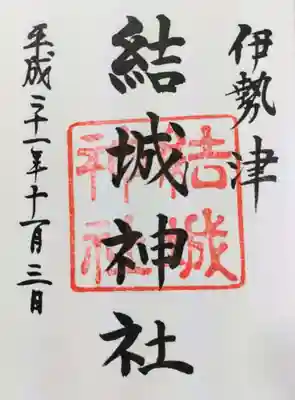 伊勢津
結城神社
結城
神社
平成二十一年十一月三日